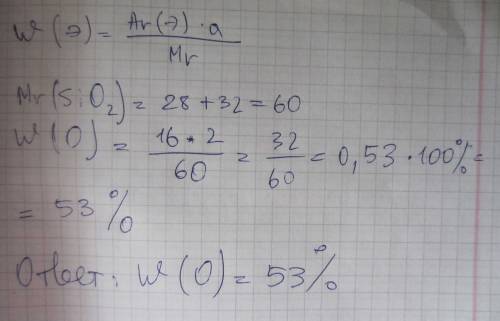 W(э) = Ar(э)·a / Mr
Mr(SiO₂) = 28 + 32 = 60
W(O) = 16·2 / 60 = 32 / 60 = 0,53·100% =
= 53%
Ответ: W(O) = 53%